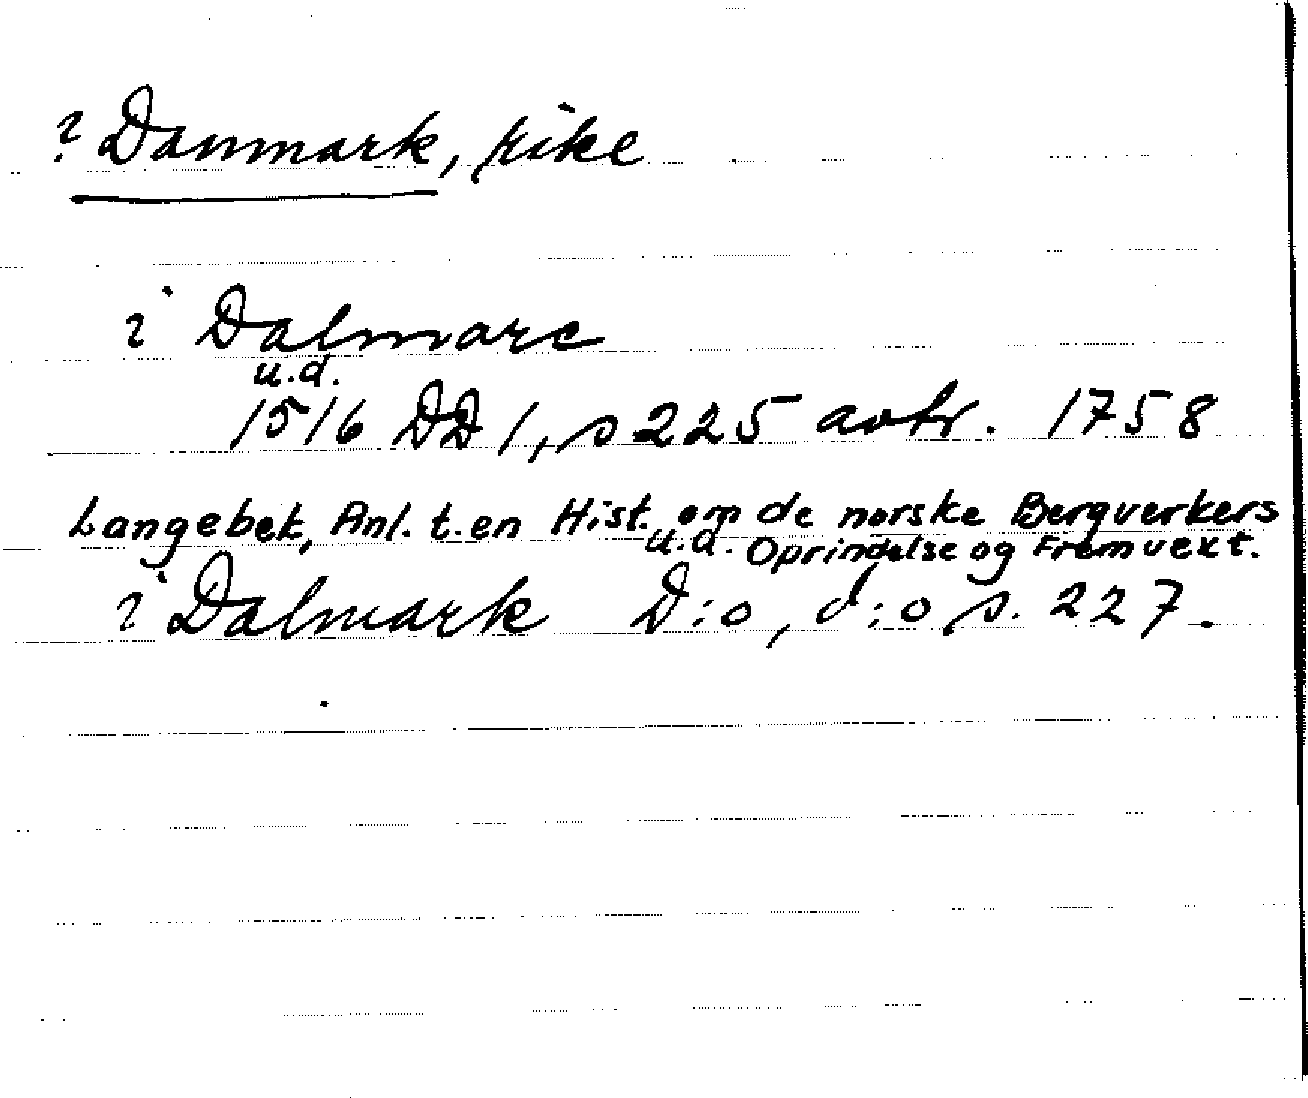 ? Danmark, rike
i Dalmarc
u.d.
1516 DD 1, s 225 avtr. 1758
Langebek, Anl. t. en Hist. om de norske Bergverkers
u.d. Oprindelse og Fremvext.
i Dalmark D:o, d:o s. 227.